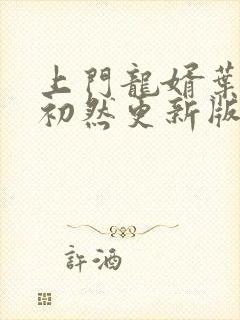 上門龍婿葉
初然更新版
許酒